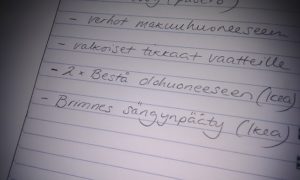 (pueero)
- verhot makuuhuoneeseen
- valkoiset tikkaat vaatteille
- 2 x Bestå olohuoneeseen (Ikea)
- Brimnes sängynpääty (Ikea)